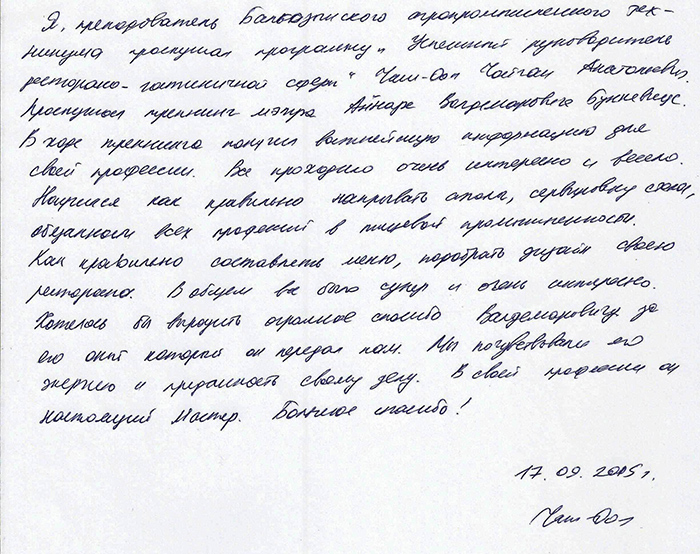 Я, преподователь Балгазынского агропромышленного тех-
никума прослушал программу „Успешный руководитель
ресторано-гостиничной сферы" Чаш-Оол Чойган Анатольевич.
Прослушал треннинг мэтра Айнара Валдемаровича
В ходе треннинга получил важнейшую информацию для
своей профессии. Все проходило очень интересно и весело.
Научился как правильно накрывать стола, сервировку стола,
обязанности всех професий в пищевой промышленности.
Как правильно составлять меню, подобрать дизайн своего
ресторана. В общем все было супер и очень интересно.
Хотелось бы выразить огромное спасибо Валдемаровичу за
его опыт который он передал нам. Мы почувствовали его
энергию и преданность своему делу. В своей професии он
настоящий Мастер. Большое спасибо!
17.09.2015г.
Чаш-Оол